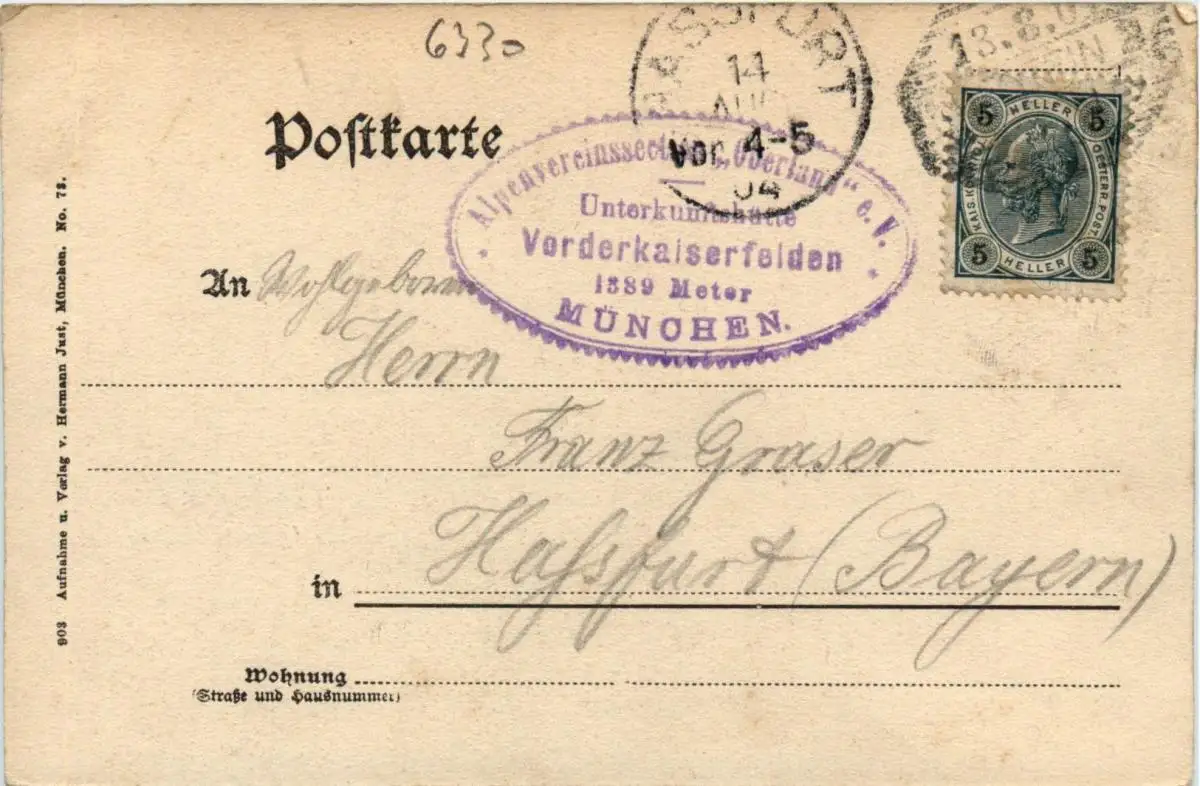 6330
HASSFURT
14
AUG
Vor. 4-5
04
13.8.0
5 HELLER 5
KAIS. KÖNIGL. OESTERR. POST.
5 HELLER 5
Poſtkarte
Alpenvereinssection „Oberland“ e.V.
Unterkunftshütte
Vorderkaiserfelden
1389 Meter
MÜNCHEN.
An Wohlgeboren
Herrn
Franz Graser
in Haſsfurt (Bayern)
Wohnung
(Straße und Hausnummer)
903 Aufnahme u. Verlag v. Hermann Just, München. No. 73.